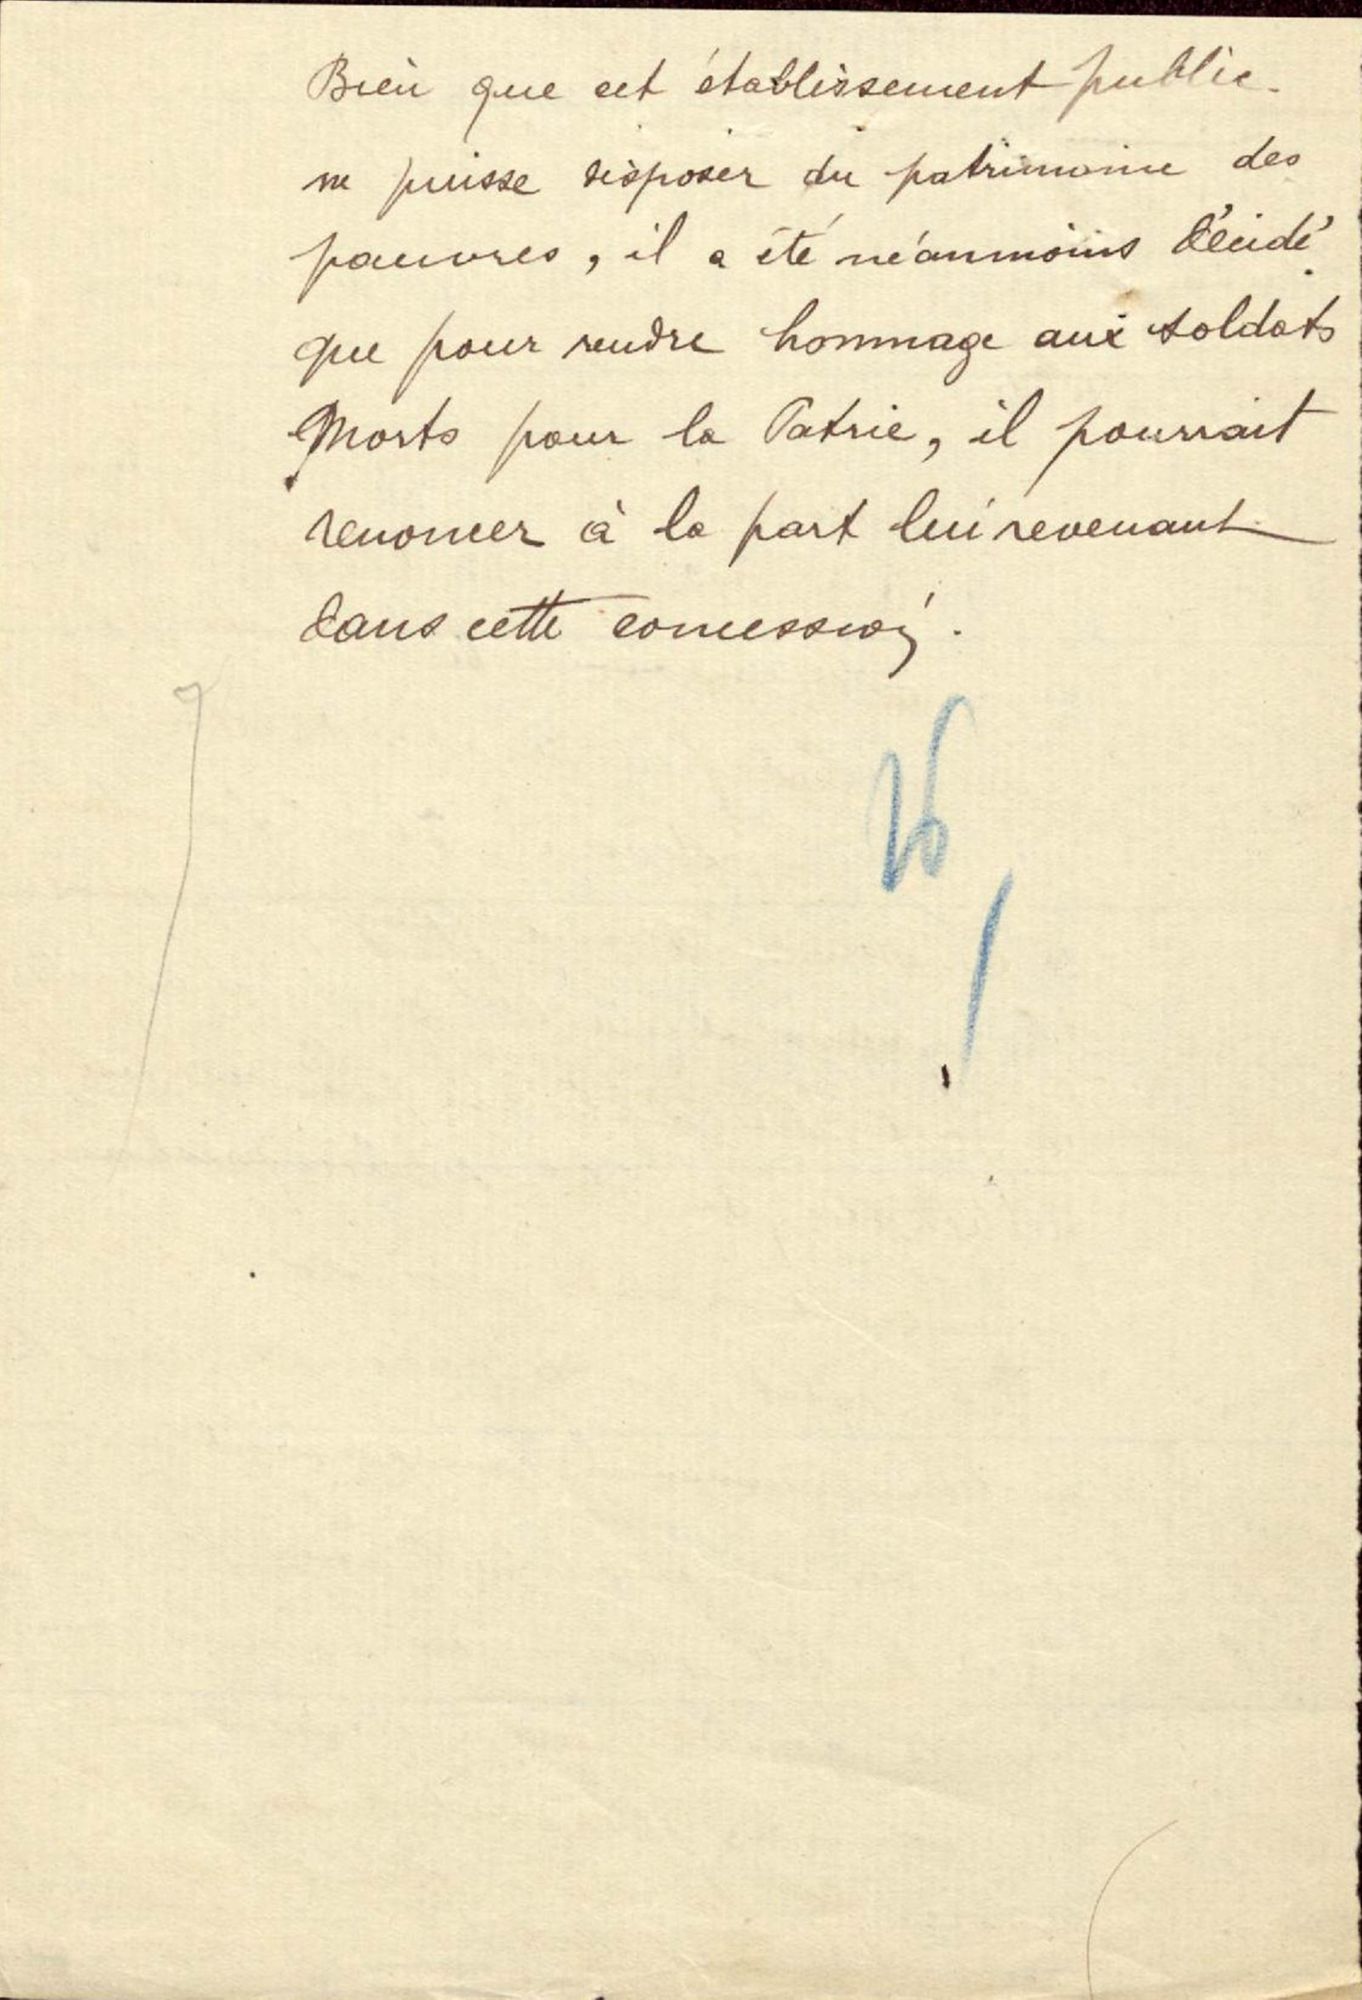 Bien que cet établissement public
ne puisse disposer du patrimoine des
pauvres, il a été néanmoins décidé
que pour rendre hommage aux soldats
Morts pour la Patrie, il pourrait
renoncer à la part lui revenant
dans cette concession.